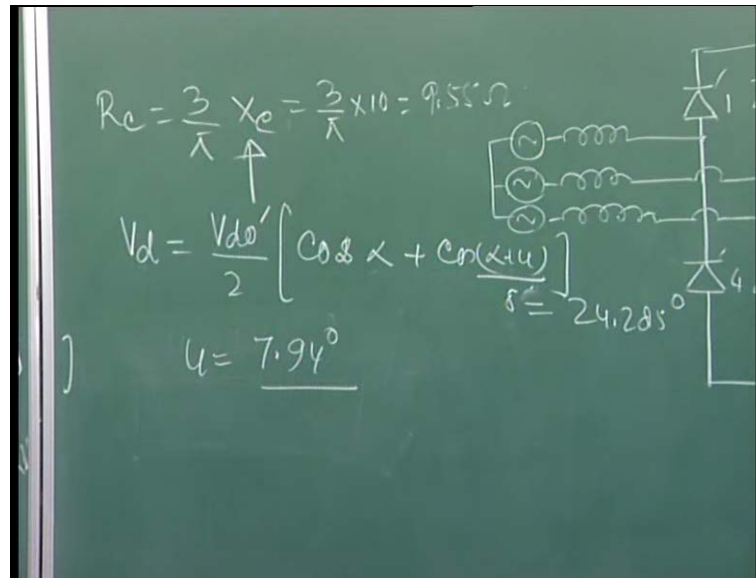 Rc = 3/π Xc = 3/π × 10 = 9.55 Ω
Vd = Vdo′/2 [ Cos α + Cos(α+u) ]
δ = 24.285°
] u = 7.94°
1
4